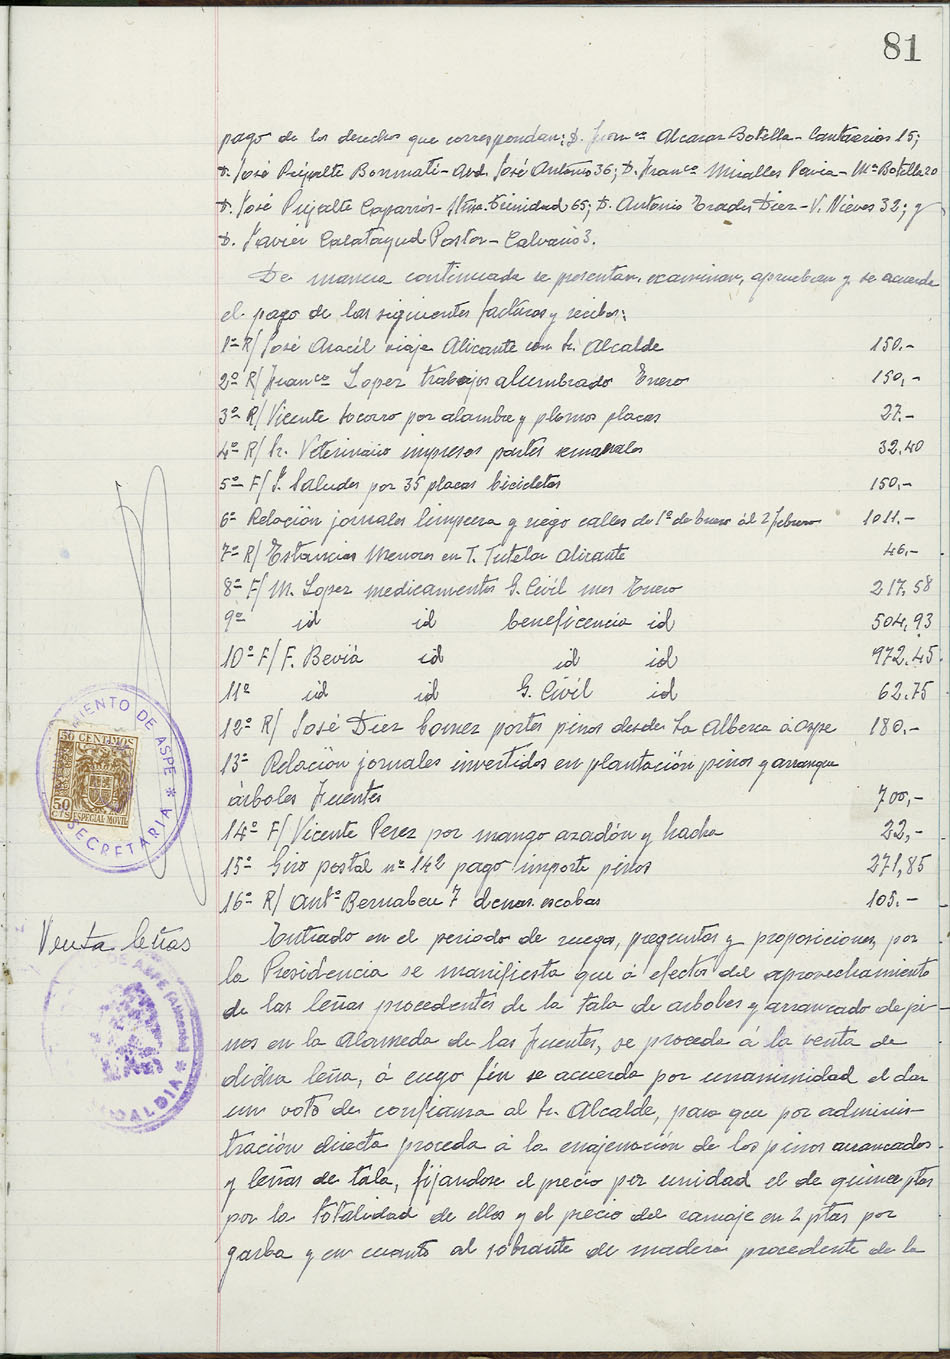 81
pago de los derechos que correspondan: D. Franco Alcaraz Botella - Cantareria 15;
D. José Pujalte Bonmati - Avd. José Antonio 36; D. Franco Miralles Pavia - Ma Botella 20
D. José Pujalte Caparrós - Stma. Trinidad 65; D. Antonio Erades Diez - V. Nieves 32; y
D. Javier Calatayud Pastor - Calvario 3.
De manera continuada se presentan, examinan, aprueban y se acuerda
el pago de las siguientes facturas y recibos:
1º R/ José Aracil viaje Alicante con Sr. Alcalde 150.-
2º R/ Franco Lopez trabajos alumbrado Enero 150,-
3º R/ Vicente Socorro por alambre y plomos placas 27.-
4º R/ Sr. Veterinario impresos partes semanales 32.40
5º F/ J. Saludes por 35 placas bicicletas 150,-
6º Relación jornales limpieza y riego calles de 1º de Enero al 2 febrero 1011.-
7º R/ Estancias Menores en T. Tutelar Alicante 46,-
8º F/ M. Lopez medicamentos G. Civil mes Enero 217,58
9º id id beneficencia id 504,93
10º F/ F. Beviá id id id 972.45
11º id id G. Civil id 62.75
12º R/ José Diez Gomez portes pinos desde La Alberca á Aspe 180.-
13º Relación jornales invertidos en plantación pinos y arranque
árboles Fuentes 700,-
14º F/ Vicente Perez por mango azadón y hacha 22,-
15º Giro postal nº 142 pago importe pinos 271,85
16º R/ Antº Bernabeu 7 docenas escobas 105.-
MIENTO DE ASPE * SECRETARIA *
50 CENTIMOS
50
CTS ESPECIAL MOVIL
Venta leñas
DE ASPE (Alicante) * ALCALDIA *
Entrado en el periodo de ruegos, preguntas y proposiciones, por
la Presidencia se manifiesta que á efectos del aprovechamiento
de las leñas procedentes de la tala de arboles y arrancado de pi-
nos en la Alameda de las Fuentes, se proceda á la venta de
dicha leña, á cuyo fin se acuerda por unanimidad el dar
un voto de confianza al Sr. Alcalde, para que por adminis-
tración directa proceda á la enajenación de los pinos arrancados
y leñas de tala, fijandose el precio por unidad el de quince ptas
por la totalidad de ellos y el precio del ramaje en 2 ptas por
garba y en cuanto al sobrante de madera procedente de la